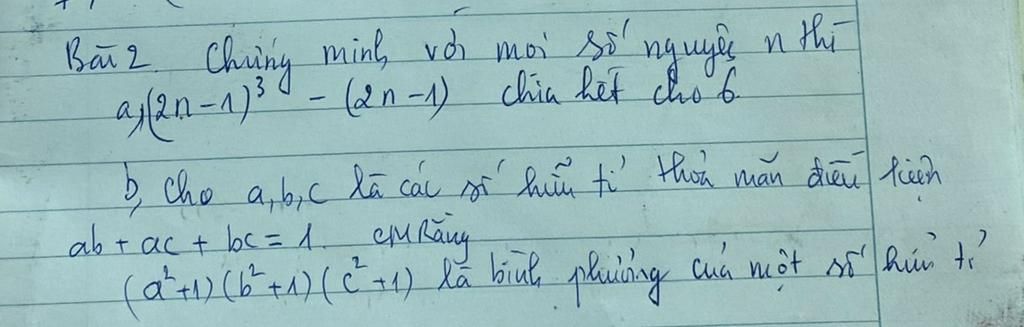 Bài 2. Chứng minh với mọi số nguyên n thì
a, (2n-1)³ - (2n-1) chia hết cho 6.
b, Cho a,b,c là các số hữu tỉ thoả mãn điều kiện
ab + ac + bc = 1. CM Rằng
(a²+1)(b²+1)(c²+1) là bình phương của một số hữu tỉ